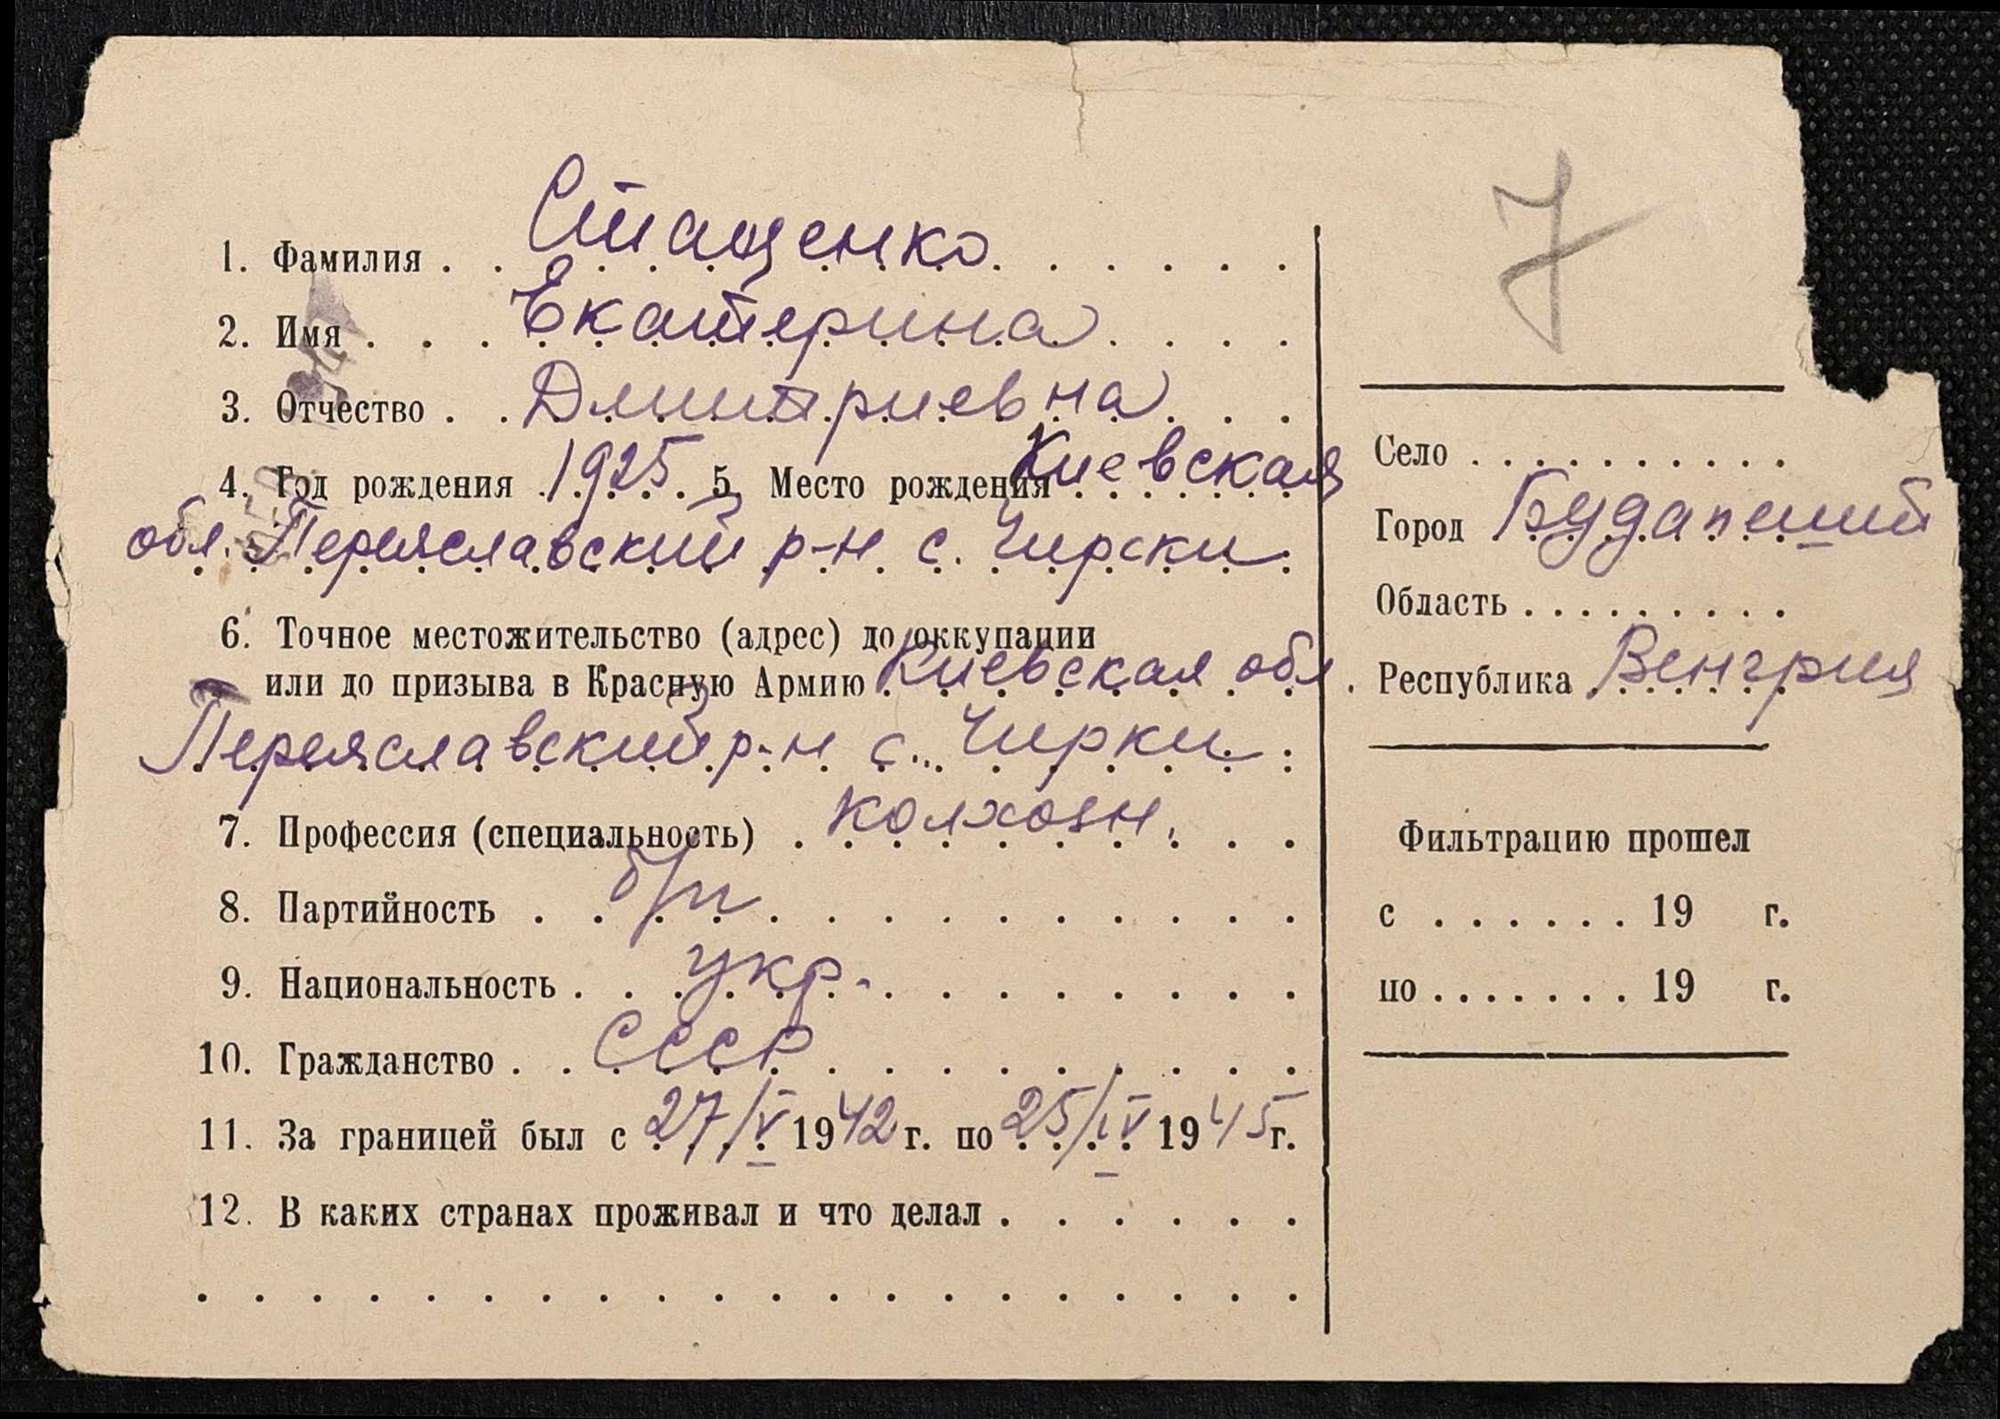 7
1. Фамилия . . Стащенко . . . . . .
2. Имя . . . Екатерина . . . .
3. Отчество . . Дмитриевна . . .
4. Год рождения . 1925 . 5. Место рождения Киевская
обл. Переяславский р-н с. Чирски
6. Точное местожительство (адрес) до оккупации
или до призыва в Красную Армию Киевская обл.
Переяславский р-н с. Чирки
7. Профессия (специальность) . колхозн. . .
8. Партийность . . б/п . . . . . . . . . .
9. Национальность . . укр. . . . . . . . .
10. Гражданство . . СССР . . . . . . . . .
11. За границей был с 27/V 1942 г. по 25/IV 1945 г.
12. В каких странах проживал и что делал . . . . . .
. . . . . . . . . . . . . . . . . . . .
Село . . . . . . . . . . .
Город Будапешт
Область . . . . . . . . .
Республика Венгрия
Фильтрацию прошел
с . . . . . . 19 г.
по . . . . . . . 19 г.